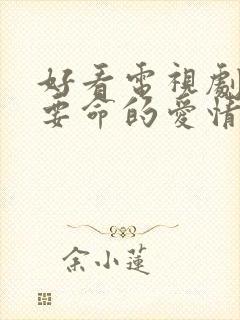 好看電視劇
要命的愛情
余小蓮